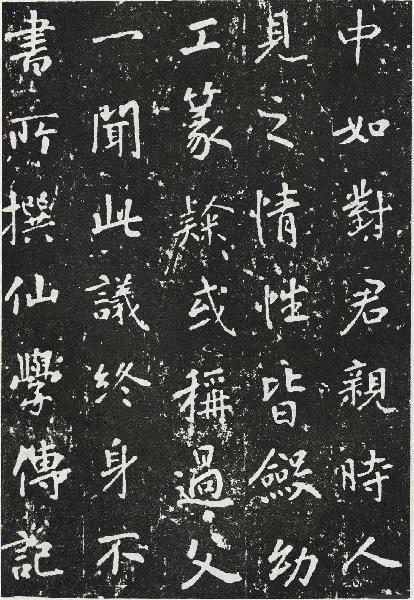 中如對君親時人
見之情性皆斂幼
工篆隸或稱過父
一聞此議終身不
書所撰仙學傳記